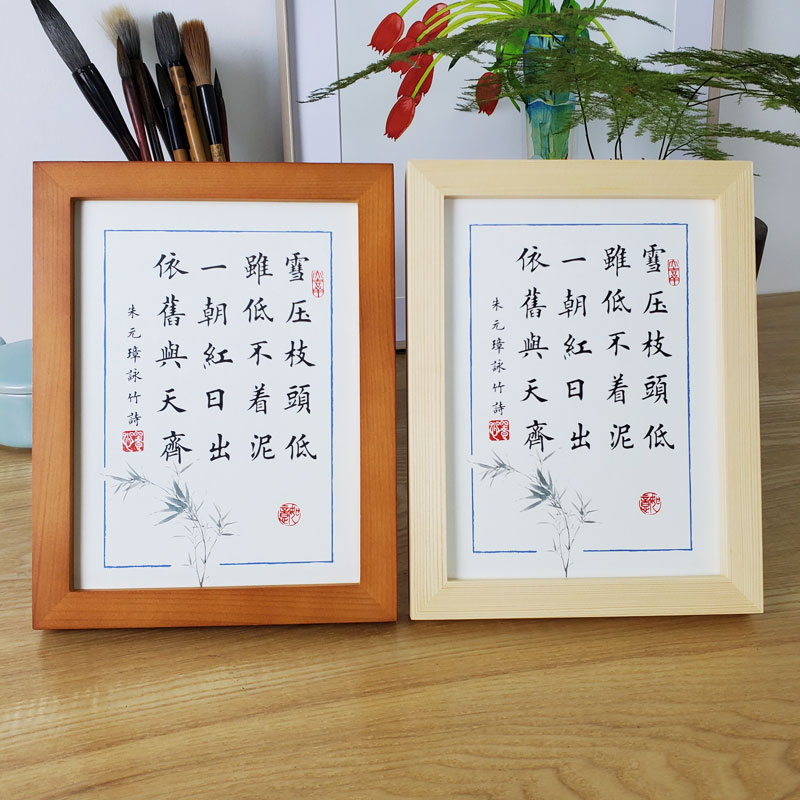 雪压枝頭低
雖低不着泥
一朝紅日出
依舊與天齊
朱元璋詠竹詩
雪压枝頭低
雖低不着泥
一朝紅日出
依舊與天齊
朱元璋詠竹詩